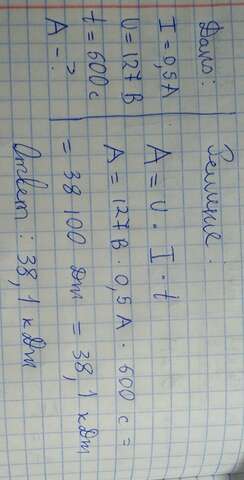 Дано:
I = 0,5А
U = 127 В
t = 600 с
А - ?
Решение.
A = U · I · t
A = 127В · 0,5А · 600 с =
= 38 100 Дж = 38,1 кДж
Ответ: 38,1 кДж